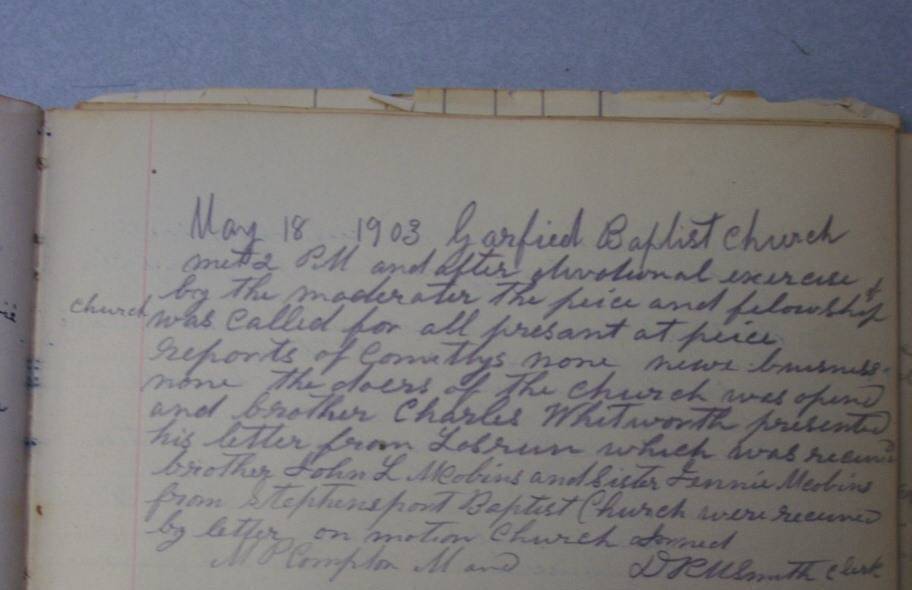 May 18 1903 Garfied Baptist church
met 2 P.M and after divotional exercise
by the moderater the peice and felowship of
church was called for all presant at peice
reports of Comettys none newe buisness
none the doers of the church was opind
and brother Charles Whitworth presented
his letter from which was receivd
brother John L and Sister Fannie
from Stephensport Baptist Church were received
by letter on motion Church
M P Compton M and Smith Clerk